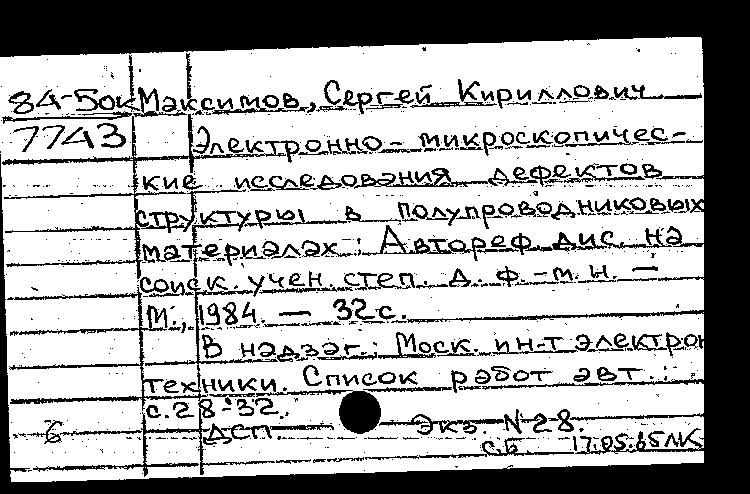 84-5ок Максимов, Сергей Кириллович
7743 Электронно-микроскопичес-
кие исследования дефектов
структуры в полупроводниковых
материалах: Автореф. дис. на
соиск. учен. степ. д. ф.-м. н. —
М., 1984. — 32 с.
В надзаг.: Моск. ин-т электрон
техники. Список работ авт.:
с. 28-32.
ДСП. Экз. N 28.
6 с.б. 17.05.85 ЛК